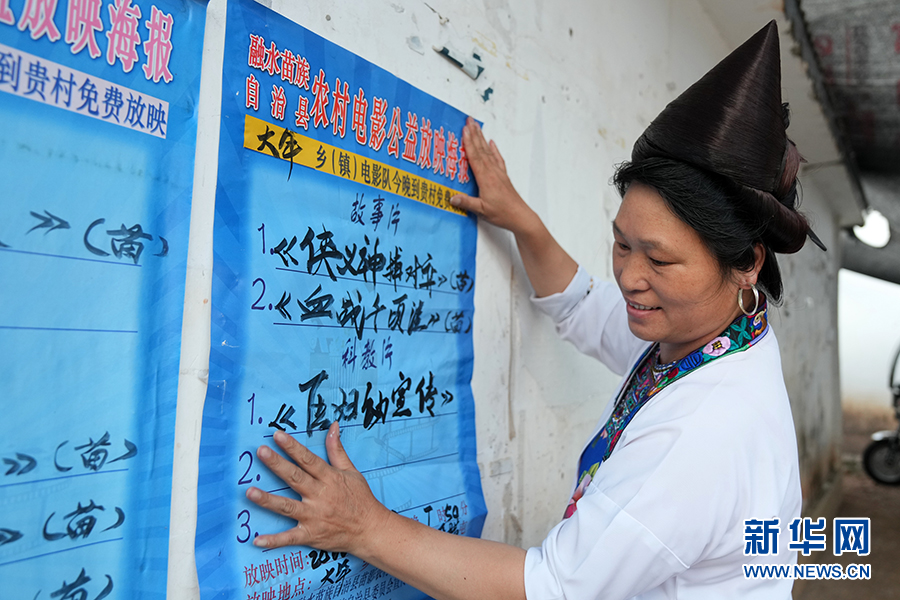 放映海报
到贵村免费放映
》（苗）
》（苗）
（苗）
（苗）
融水苗族
自治县
农村电影公益放映海报
大年 乡（镇）电影队今晚到贵村免费
故事片
1.《侠义神捕对车》（苗）
2.《血战千顷洼》（苗）
科教片
1.《医妇幼宣传》
2.
3.
放映时间：
时50分
放映地点：大年
新华网
WWW.NEWS.CN